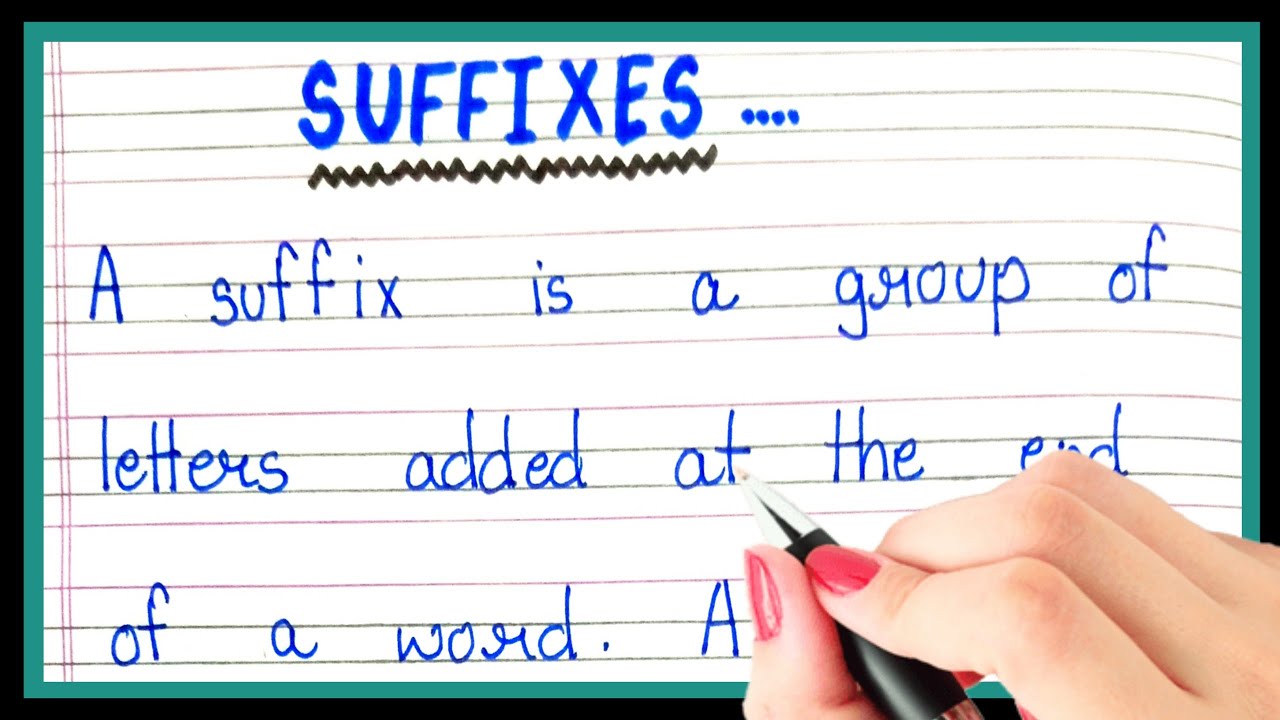 SUFFIXES ....
A suffix is a group of
letters added at the end
of a word. A